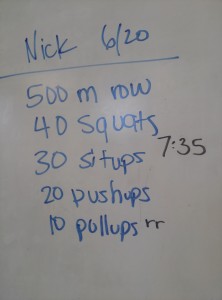 Nick 6/20
500 m row
40 Squats
30 situps 7:35
20 pushups
10 pullups rr